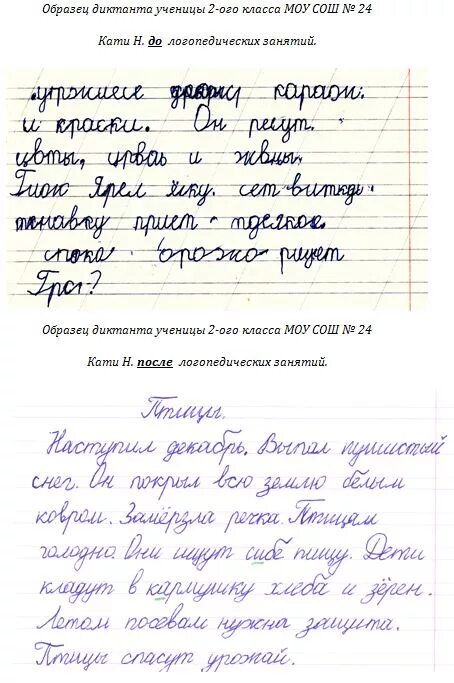 Образец диктанта ученицы 2-ого класса МОУ СОШ № 24
Кати Н. до логопедических занятий.
карасн.
и краски. Он ресут.
цвты, црваь и жвны.
Ярел ёлку. сет
приет
рщет
Грст?
Образец диктанта ученицы 2-ого класса МОУ СОШ № 24
Кати Н. после логопедических занятий.
Птицы.
Наступил декабрь. Выпал пушистый
снег. Он покрыл всю землю белым
ковром. Замёрзла речка. Птицам
голодно. Они ищут сибе пищу. Дети
кладут в кармушку хлеба и зёрен.
Летом посевам нужна защита.
Птицы спасут урожай.